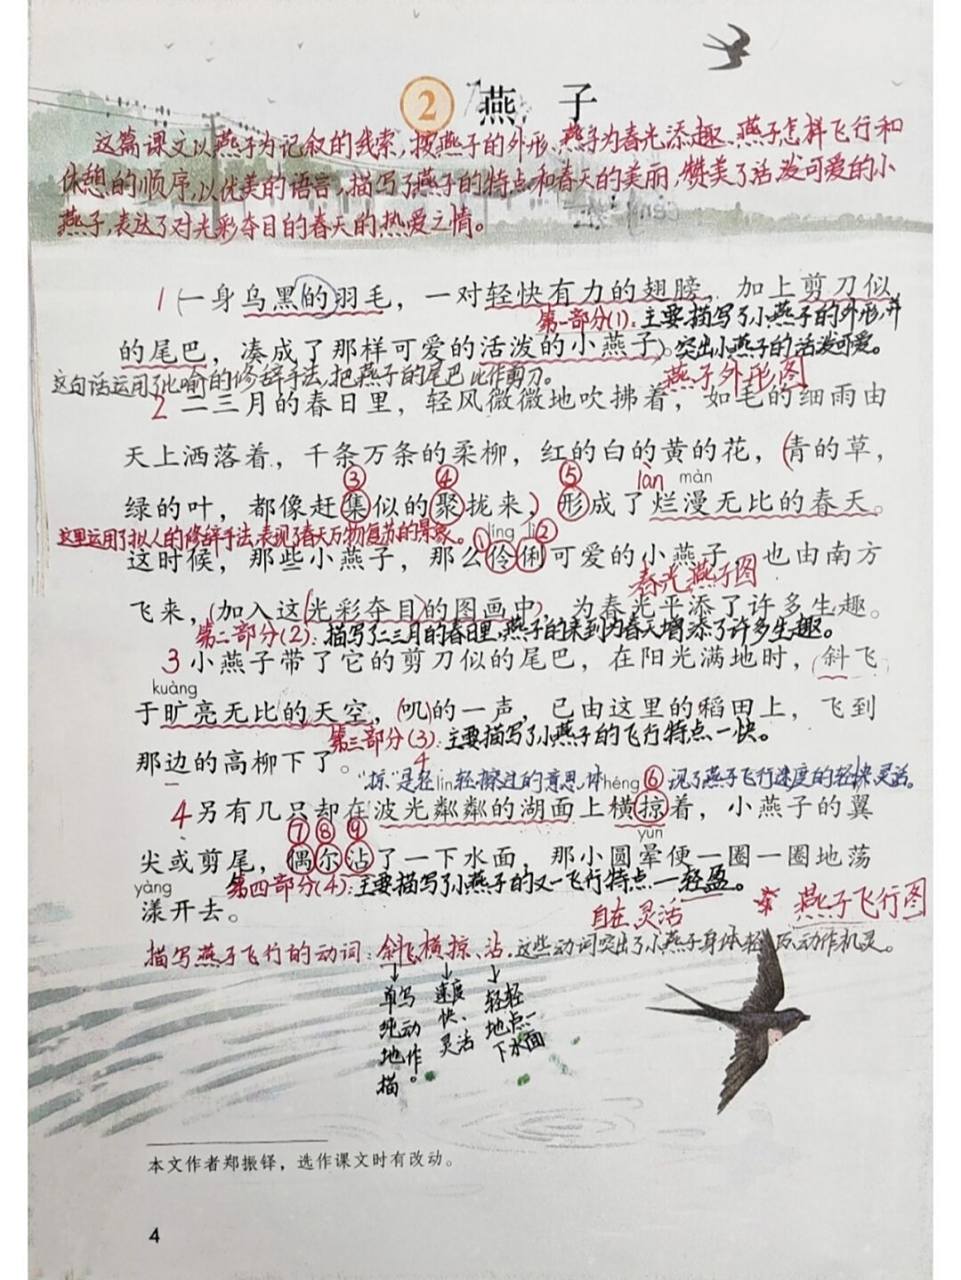 2 燕 子
这篇课文以燕子为记叙的线索,按燕子的外形、燕子为春光添趣、燕子怎样飞行和
休憩的顺序,以优美的语言,描写了燕子的特点和春天的美丽,赞美了活泼可爱的小
燕子,表达了对光彩夺目的春天的热爱之情。
1 (一身乌黑的羽毛,一对轻快有力的翅膀,加上剪刀似
第一部分(1):主要描写了小燕子的外形,并
的尾巴,凑成了那样可爱的活泼的小燕子)。突出小燕子的活泼可爱。
这句话运用了比喻的修辞手法,把燕子的尾巴比作剪刀。
燕子外形图
2 二三月的春日里,轻风微微地吹拂着,如毛的细雨由
天上洒落着,千条万条的柔柳,红的白的黄的花,(青的草,
③ ④ ⑤ làn màn
绿的叶,都像赶集似的聚拢来,)形成了烂漫无比的春天。
这里运用了拟人的修辞手法,表现了春天万物复苏的景象。
① líng lì ②
这时候,那些小燕子,那么伶俐可爱的小燕子,也由南方
春光燕子图
飞来,(加入这(光彩夺目)的图画中),为春光平添了许多生趣。
第二部分(2):描写了二三月的春日里,燕子的来到为春天增添了许多生趣。
3 小燕子带了它的剪刀似的尾巴,在阳光满地时,斜飞
kuàng
于旷亮无比的天空,(叽)的一声,已由这里的稻田上,飞到
第三部分(3):主要描写了小燕子的飞行特点一快。
那边的高柳下了。
"掠"是轻轻擦过的意思,体现了燕子飞行速度的轻快灵活。
lín héng ⑥
4 另有几只却在波光粼粼的湖面上横掠着,小燕子的翼
⑦ ⑧ ⑨ yùn
尖或剪尾,偶尔沾了一下水面,那小圆晕便一圈一圈地荡
yàng
第四部分(4):主要描写了小燕子的又一飞行特点一轻盈。
漾开去。
自在灵活
燕子飞行图
描写燕子飞行的动词:斜飞、横掠、沾。这些动词突出了小燕子身体轻巧、动作机灵。
单纯地描写动作。
速度快、灵活
轻轻地点一下水面
本文作者郑振铎,选作课文时有改动。
4